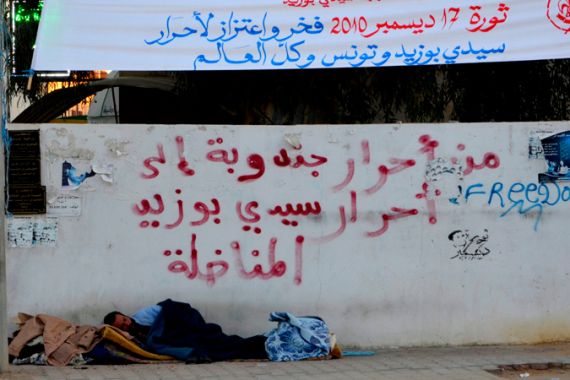 سيدي بوزيد
ثورة 17 ديسمبر 2010 فخر واعتزاز لأحرار
سيدي بوزيد وتونس وكل العالم
من أحرار جندوبة إلى
أحرار سيدي بوزيد
المناضلة
FREEDO